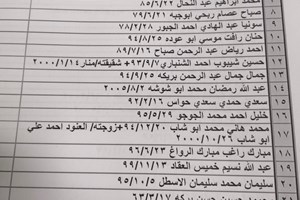 محمد ابراهيم عبد النحال ٨٥/٦/٢١
صباح عصام ربحي ابوجبه ٧٩/٦/٢١
سونيا عبد الهادي احمد الجبور ٧٨/٢/٢٨
حنان رافت موسى ابو عوده ٩٤/٨/٢٥
احمد رياض عبد الرحمن صباح ٨٩/٧/١٦
حسين شبيوب احمد الشنباري ٩٣/٩/٧+شقيقته/منار ٢٠٠٠/١/١٤
جمال جمال عبد الرحمن بريكه ٩٤/٩/٢٥
عبد الله رمضان محمد ابو شوشه ٢٠٠٥/٨/٢
سعدي حمدي سعدي حواس ٩٢/٢/١٦
خليل احمد محمد الجوجو ٩٥/٥/٢٩
محمد هاني محمد ابو شاب ٩٤/١٢/٢٠+زوجته/ العنود احمد علي
ابو شاب ٢٠٠٠/١٠/٢٦
مبارك راغب مبارك الرواغ ٩٦/٦/٢٣
عبد الله نسيم خميس العقاد ٩٩/١١/١٣
سليمان محمد سليمان الاسطل ٩٥/١٠/٥
محمد حسين حسين بركه ٦٣/٣/١٧
١١
١٢
١٣
١٤
١٥
١٦
١٧
١٨
١٩
٢٠